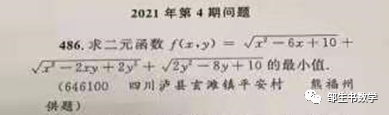 2021 年第 4 期问题
486. 求二元函数 f(x,y) = √(x²-6x+10) +
√(x²-2xy+2y²) + √(2y²-8y+10) 的最小值.
(646100 四川泸县玄滩镇平安村 熊福州
供题)
邹生书数学